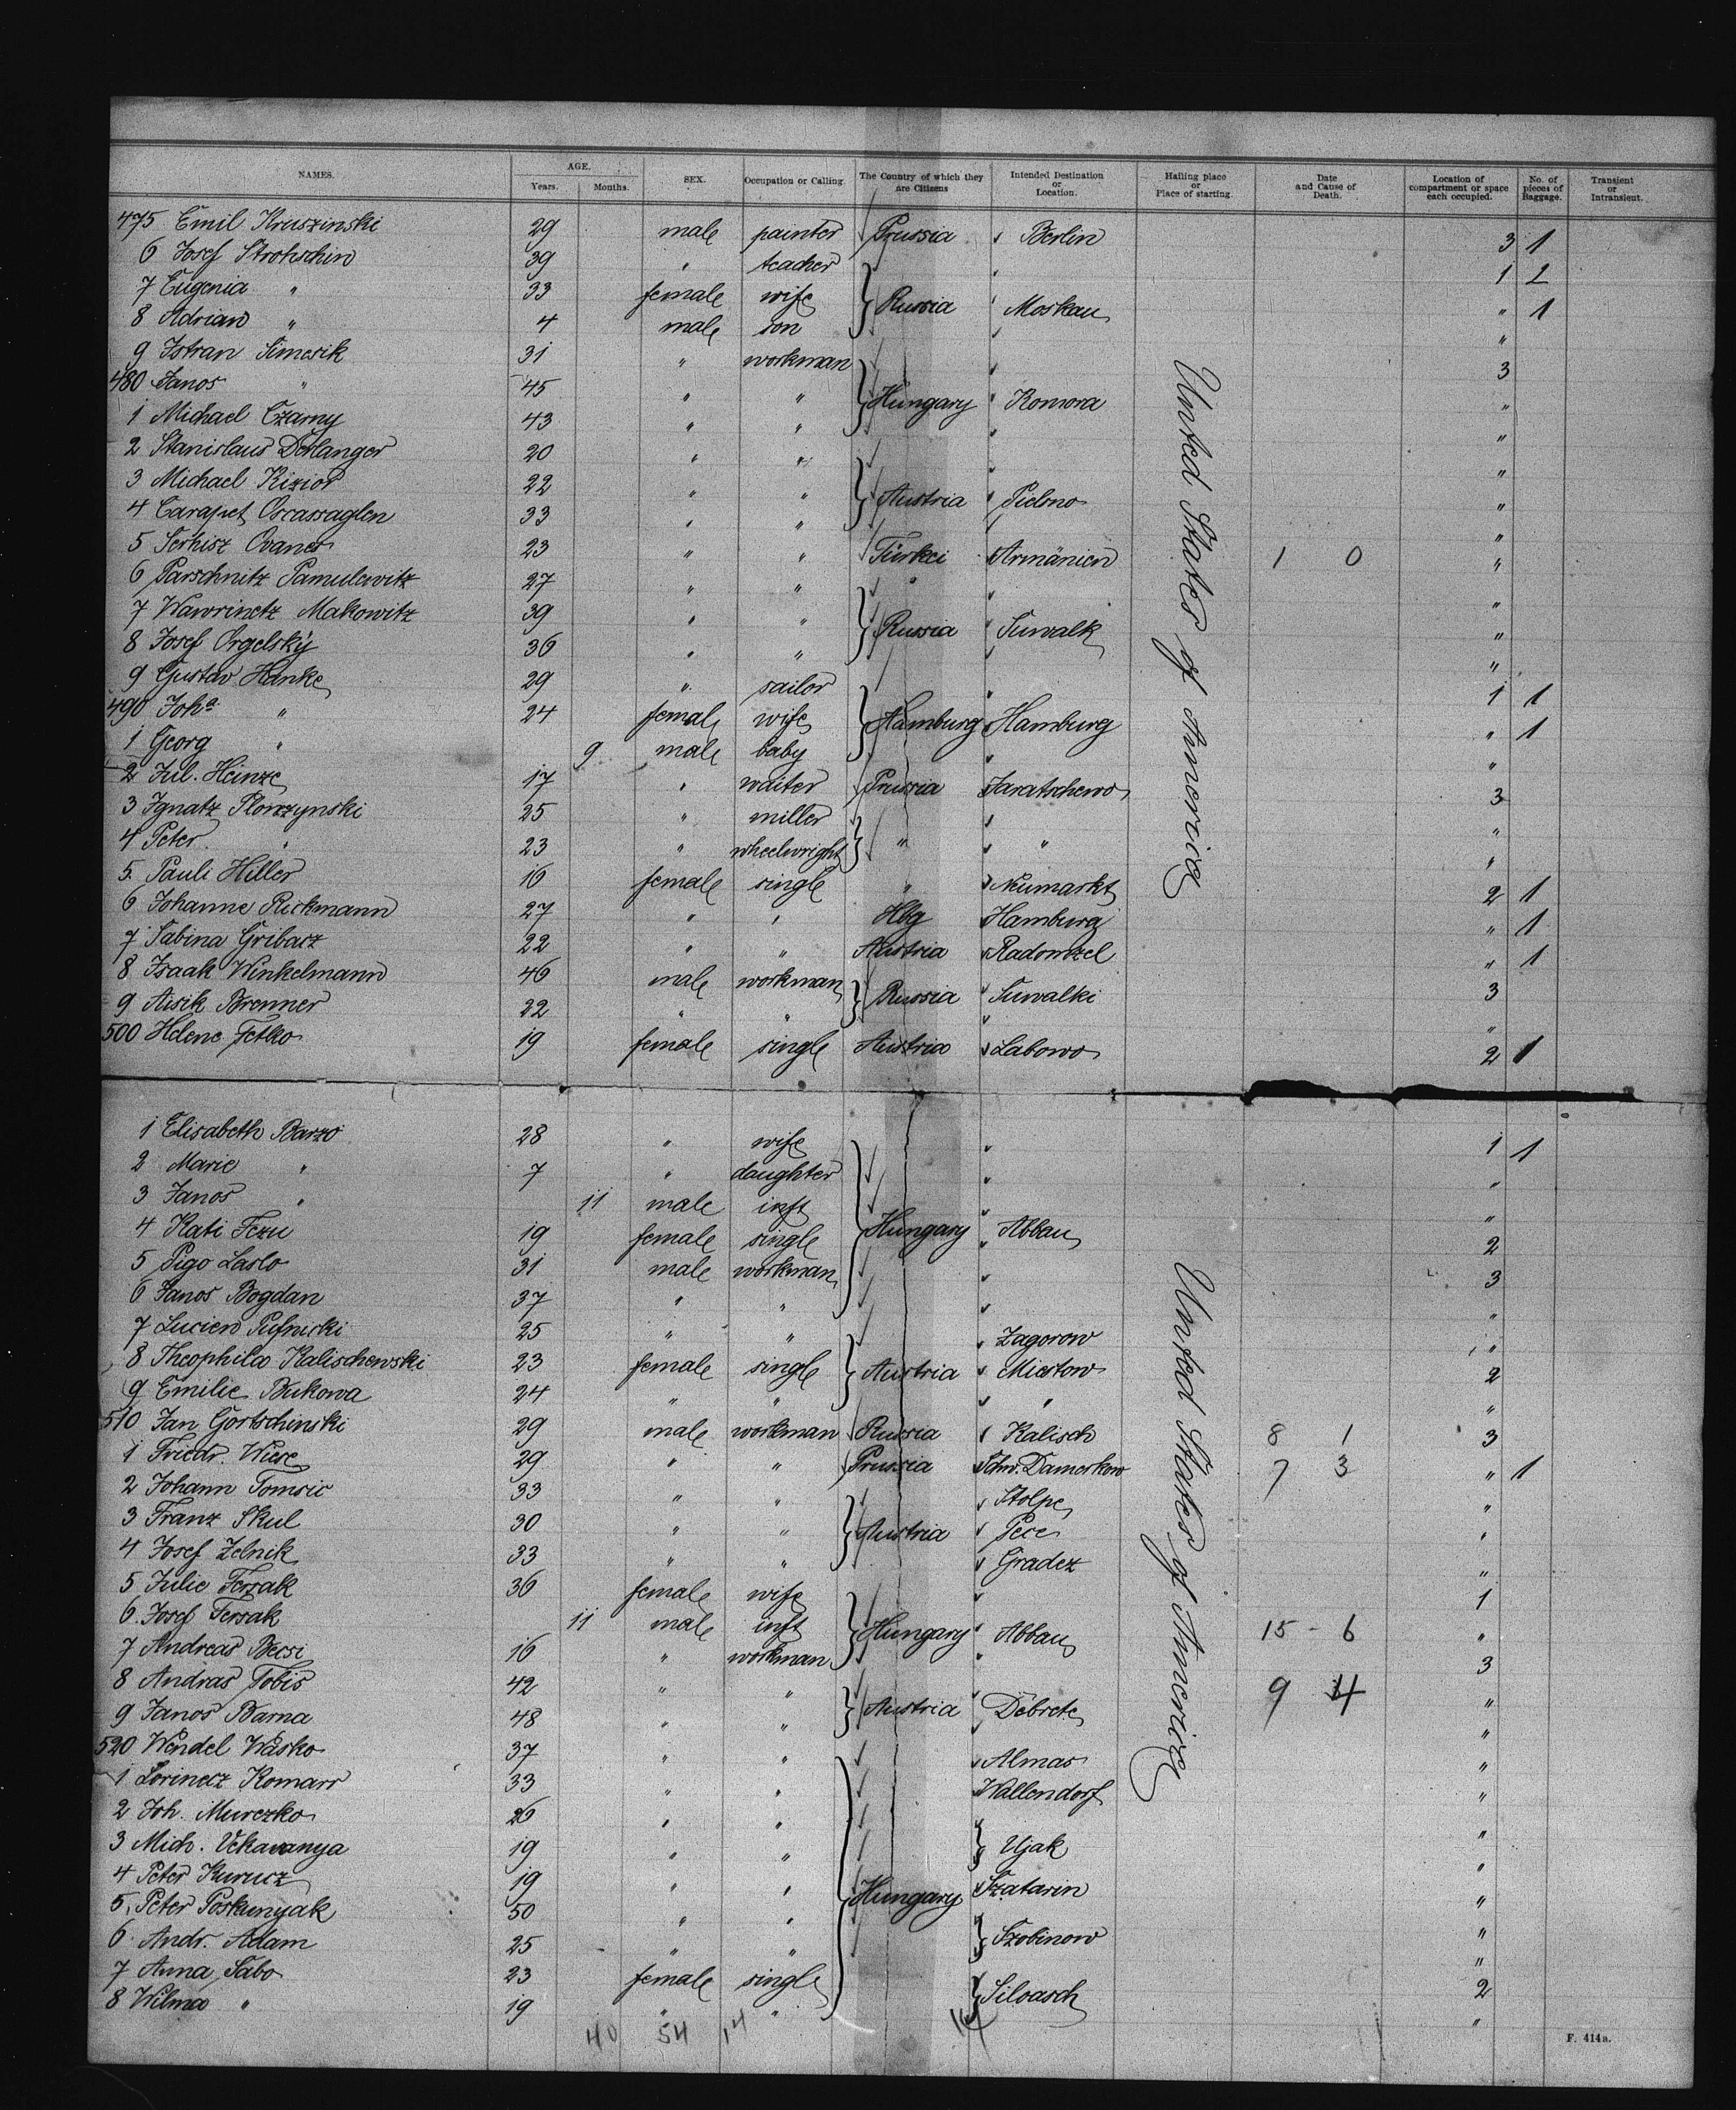 NAMES. AGE. Years. Months. SEX. Occupation or Calling. The Country of which they are Citizens Intended Destination or Location. Hailing place or Place of starting. Date and Cause of Death. Location of compartment or space each occupied. No. of pieces of Baggage. Transient or Intransient.
475 Emil Kruszinski 29 male painter Prussia Berlin 3 1
6 Josef Strohschin 39 " teacher 1 2
7 Eugenia " 33 female wife Russia Moskau " 1
8 Adrian " 4 male son "
9 Istran Simcsik 31 " workman 3
480 Janos " 45 " " Hungary Komora "
1 Michael Czarny 43 " " "
2 Stanislaus Derlanger 20 " " "
3 Michael Kizior 22 " " Austria Pielsno "
4 Carapet Oscassaglen 33 " " "
5 Serkisz Ovanes 23 " " Türkei Armänien 1 0 "
6 Parschnitz Pamulewitz 27 " " " "
7 Wawrinetz Makowitz 39 " " Russia Suwalk "
8 Josef Orgelský 36 " " "
9 Gustav Hanke 29 " sailor 1 1
490 Joha " 24 female wife Hamburg Hamburg " 1
1 Georg " 9 male baby "
2 Jul. Heinze 17 " waiter Prussia Jaratschewo 3
3 Ignatz Plonzynski 25 " miller "
4 Peter " 23 " wheelwright " " "
5 Pauli Hiller 16 female single " Neumarkt 2 1
6 Johanne Rickmann 27 " " Hbg Hamburg " 1
7 Sabina Gribacz 22 " " Austria Radomzel " 1
8 Isaak Winkelmann 46 male workman Russia Suwalki 3
9 Aisik Brenner 22 " " "
500 Helene Fetko 19 female single Austria Labowo 2 1
1 Elisabeth Barzo 28 " wife 1 1
2 Marie " 7 " daughter "
3 Janos " 11 male inft "
4 Kati Fezu 19 female single Hungary Abbau 2
5 Pigo Laslo 31 male workman 3
6 Janos Bogdan 37 " " "
7 Lucien Pufnicki 25 " " Zagorow "
8 Theophila Kalischewski 23 female single Austria Miertow 2
9 Emilie Bukowa 24 " " " "
510 Jan Gortschinski 29 male workman Russia Kalisch 8 1 3
1 Friedr. Wiese 29 " " Prussia Schw. Damerkow 7 3 " 1
2 Johann Tomsic 33 " " Stolpe "
3 Franz Skul 30 " " Austria Pece "
4 Josef Zelnik 33 " " Gradez "
5 Julie Terzak 36 female wife 1
6 Josef Tersak 11 male inft Hungary Abbau 15 - 6 "
7 Andreas Becsi 16 " workman 3
8 Andras Tobis 42 " " Austria Debrete 9 4 "
9 Janos Barna 48 " " "
520 Wendel Wasko 37 " " Almas "
1 Lorinecz Komarr 33 " " Wallendorf "
2 Joh. Murczko 26 " " "
3 Mich. Vekavanya 19 " " Ujak "
4 Peter Kurucz 19 " " Hungary Szatarin "
5 Peter Poskunyak 50 " " "
6 Andr. Adam 25 " " Szobinow "
7 Anna Sabo 23 female single 2
8 Wilma " 19 " " Siloasch "
United States of America
United States of America
40 54 14
F. 414a.